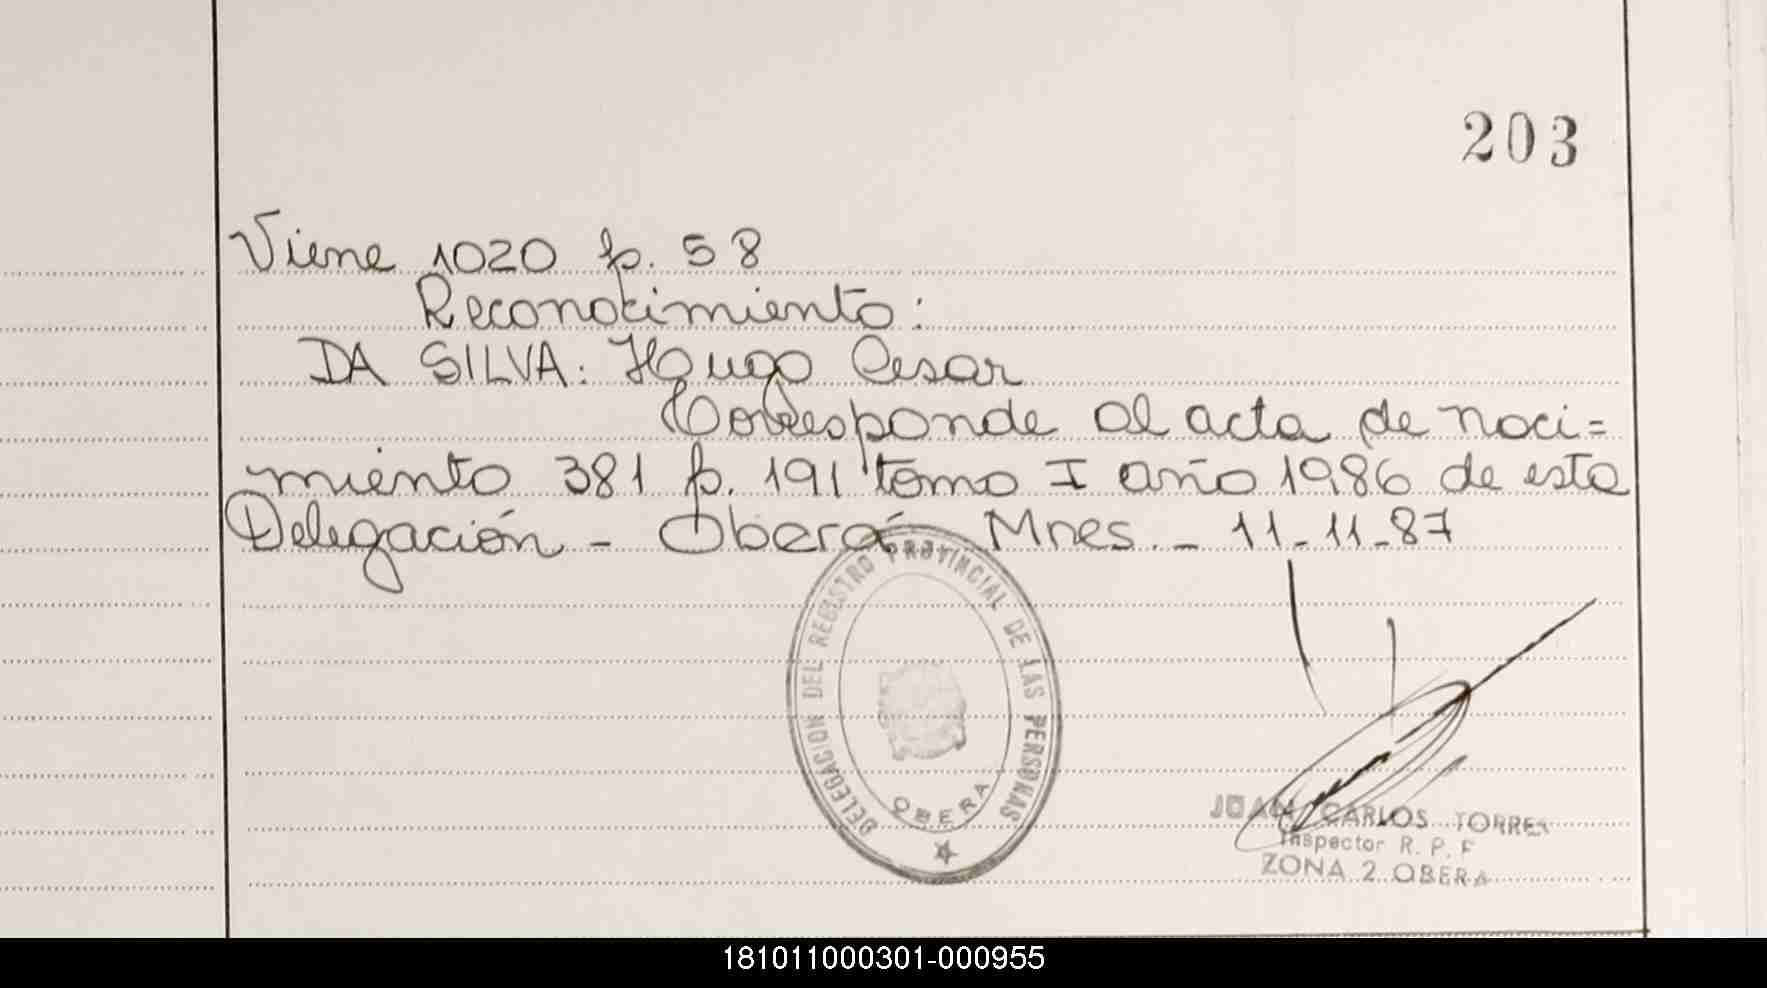 203
Viene 1020 p. 58
Reconocimiento:
DA SILVA: Hugo Cesar
Corresponde al acta de naci=
miento 381 p. 191 tomo I año 1986 de esta
Delegación - Oberá Mnes. - 11-11-87
DELEGACION DEL REGISTRO PROVINCIAL DE LAS PERSONAS
OBERA
JUAN CARLOS TORRES
Inspector R. P. P
ZONA 2 OBERA
181011000301-000955